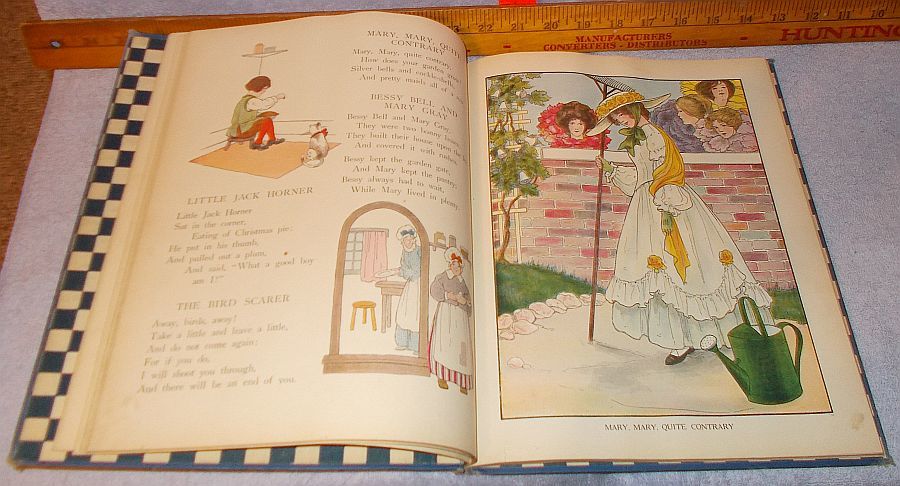 MANUFACTURERS
CONVERTERS - DISTRIBUTORS
HUNTING
LITTLE JACK HORNER
Little Jack Horner
Sat in the corner,
Eating of Christmas pie;
He put in his thumb,
And pulled out a plum,
And said, "What a good boy
am I?"
THE BIRD SCARER
Away, birds, away!
Take a little and leave a little,
And do not come again;
For if you do,
I will shoot you through,
And there will be an end of you.
MARY, MARY, QUITE
CONTRARY
Mary, Mary, quite contrary,
How does your garden grow?
Silver bells and cockle-shells,
And pretty maids all of a
BESSY BELL AND
MARY GRAY
Bessy Bell and Mary Gray,
They were two bonny lasses;
They built their house upon the
And covered it with rushes.
Bessy kept the garden gate,
And Mary kept the pantry;
Bessy always had to wait,
While Mary lived in plenty.
MARY, MARY, QUITE CONTRARY